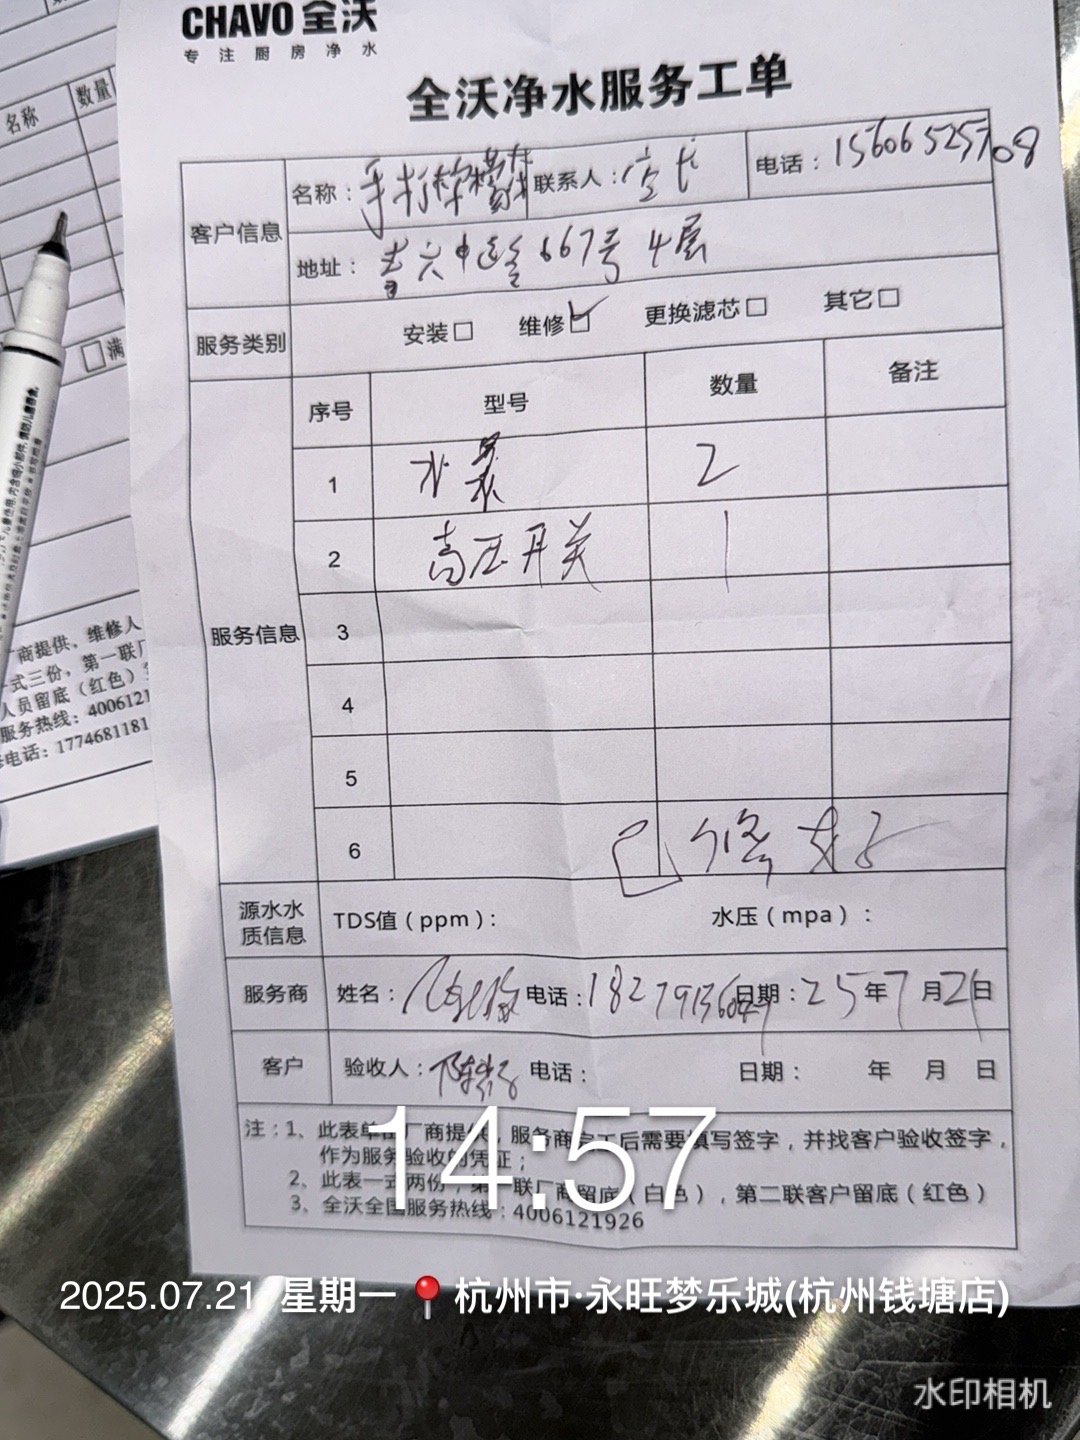 CHAVO 全沃
专注厨房净水
全沃净水服务工单
名称
数量
客户信息 名称：手打柠檬茶 联系人：店长 电话：15606525708
地址：青六中路667号4层
服务类别 安装□ 维修☑ 更换滤芯□ 其它□
服务信息 序号 型号 数量 备注
1 水泵 2
2 高压开关 1
3
4
5
6 已修好
源水水质信息 TDS值（ppm）： 水压（mpa）：
服务商 姓名： 电话： 日期：25年7月21日
客户 验收人： 电话： 日期： 年 月 日
注：1、此表单由厂商提供，服务商完工后需要填写签字，并找客户验收签字，
作为服务验收的凭证；
2、此表一式两份，第一联厂商留底（白色），第二联客户留底（红色）
3、全沃全国服务热线：4006121926
□满
商提供，维修人
一式三份，第一联厂
人员留底（红色）
服务热线：4006121
电话：1774681181
14:57
2025.07.21 星期一 📍杭州市·永旺梦乐城(杭州钱塘店)
水印相机